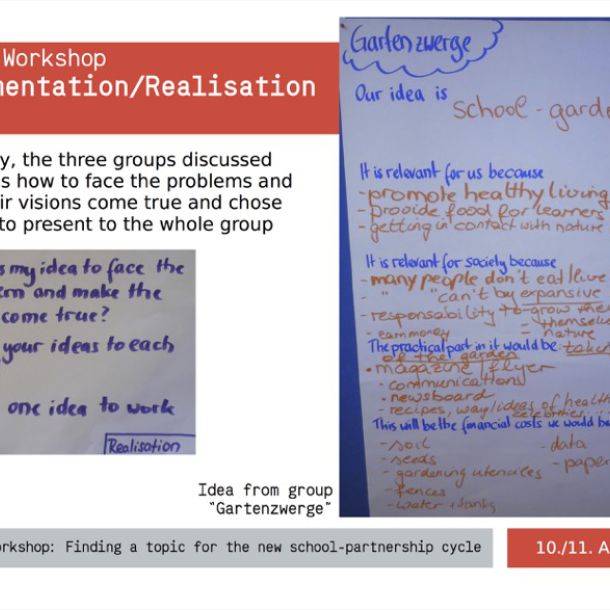 Workshop
mentation/Realisation
y, the three groups discussed
s how to face the problems and
ir visions come true and chose
to present to the whole group
s my idea to face the
em and make the
come true?
your ideas to each
one idea to work
Realisation
Idea from group
"Gartenzwerge"
Gartenzwerge
Our idea is
school-garde
It is relevant for us because
- promote healthy living
- provide food for learners
- getting in contact with nature
It is relevant for society because
- many people don't eat live
- " " can't by expansive
- responsability to grow the
- themsel
- earn money - nature
The practical part in it would be: take
of the garden
• magazine / flyer
- communications
- newsboard
- recipes, way/ideas of health
celebrities...
This will be the financial costs we would be
- soil - data
- seeds - paper
- gardening utencies
- fences
- water + tanks
orkshop: Finding a topic for the new school-partnership cycle
10./11. A